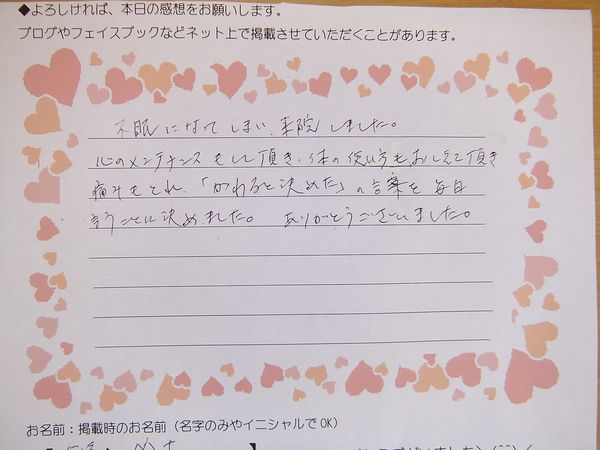 ◆よろしければ、本日の感想をお願いします。
ブログやフェイスブックなどネット上で掲載させていただくことがあります。
不眠になってしまい、来院しました。
心のメンテナンスもして頂き、体の使い方もおしえて頂き
痛みもとれ、「かわると決めた」の言葉を毎日
言うことに決めました。 ありがとうございました。
お名前：掲載時のお名前（名字のみやイニシャルでOK）